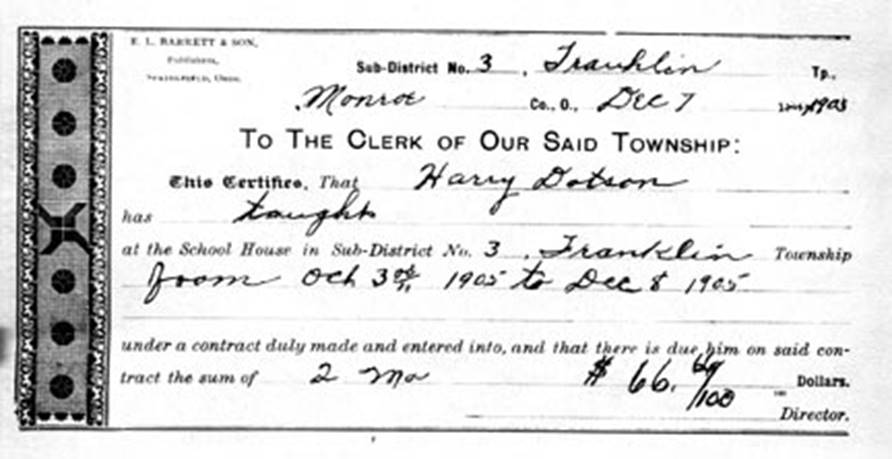 E. L. BARRETT & SON,
Publishers,
SPRINGFIELD, OHIO.
Sub-District No. 3, Franklin Tp.,
Monroe Co., O., Dec 7 1905
TO THE CLERK OF OUR SAID TOWNSHIP:
This Certifies, That Harry Dotson
has taught
at the School House in Sub-District No. 3, Franklin Township
from Oct 3 1905 to Dec 8 1905
under a contract duly made and entered into, and that there is due him on said con-
tract the sum of 2 Mo $ 66. /100 Dollars.
Director.